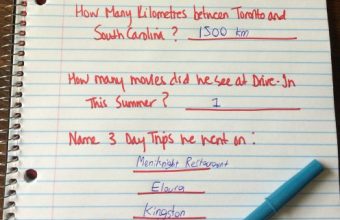 How Many Kilometres between Toronto and
South Carolina? 1500 km
How many movies did we see at Drive-In
This Summer? 1
Name 3 Day Trips we went on:
Restaurant
Elora
Kingston